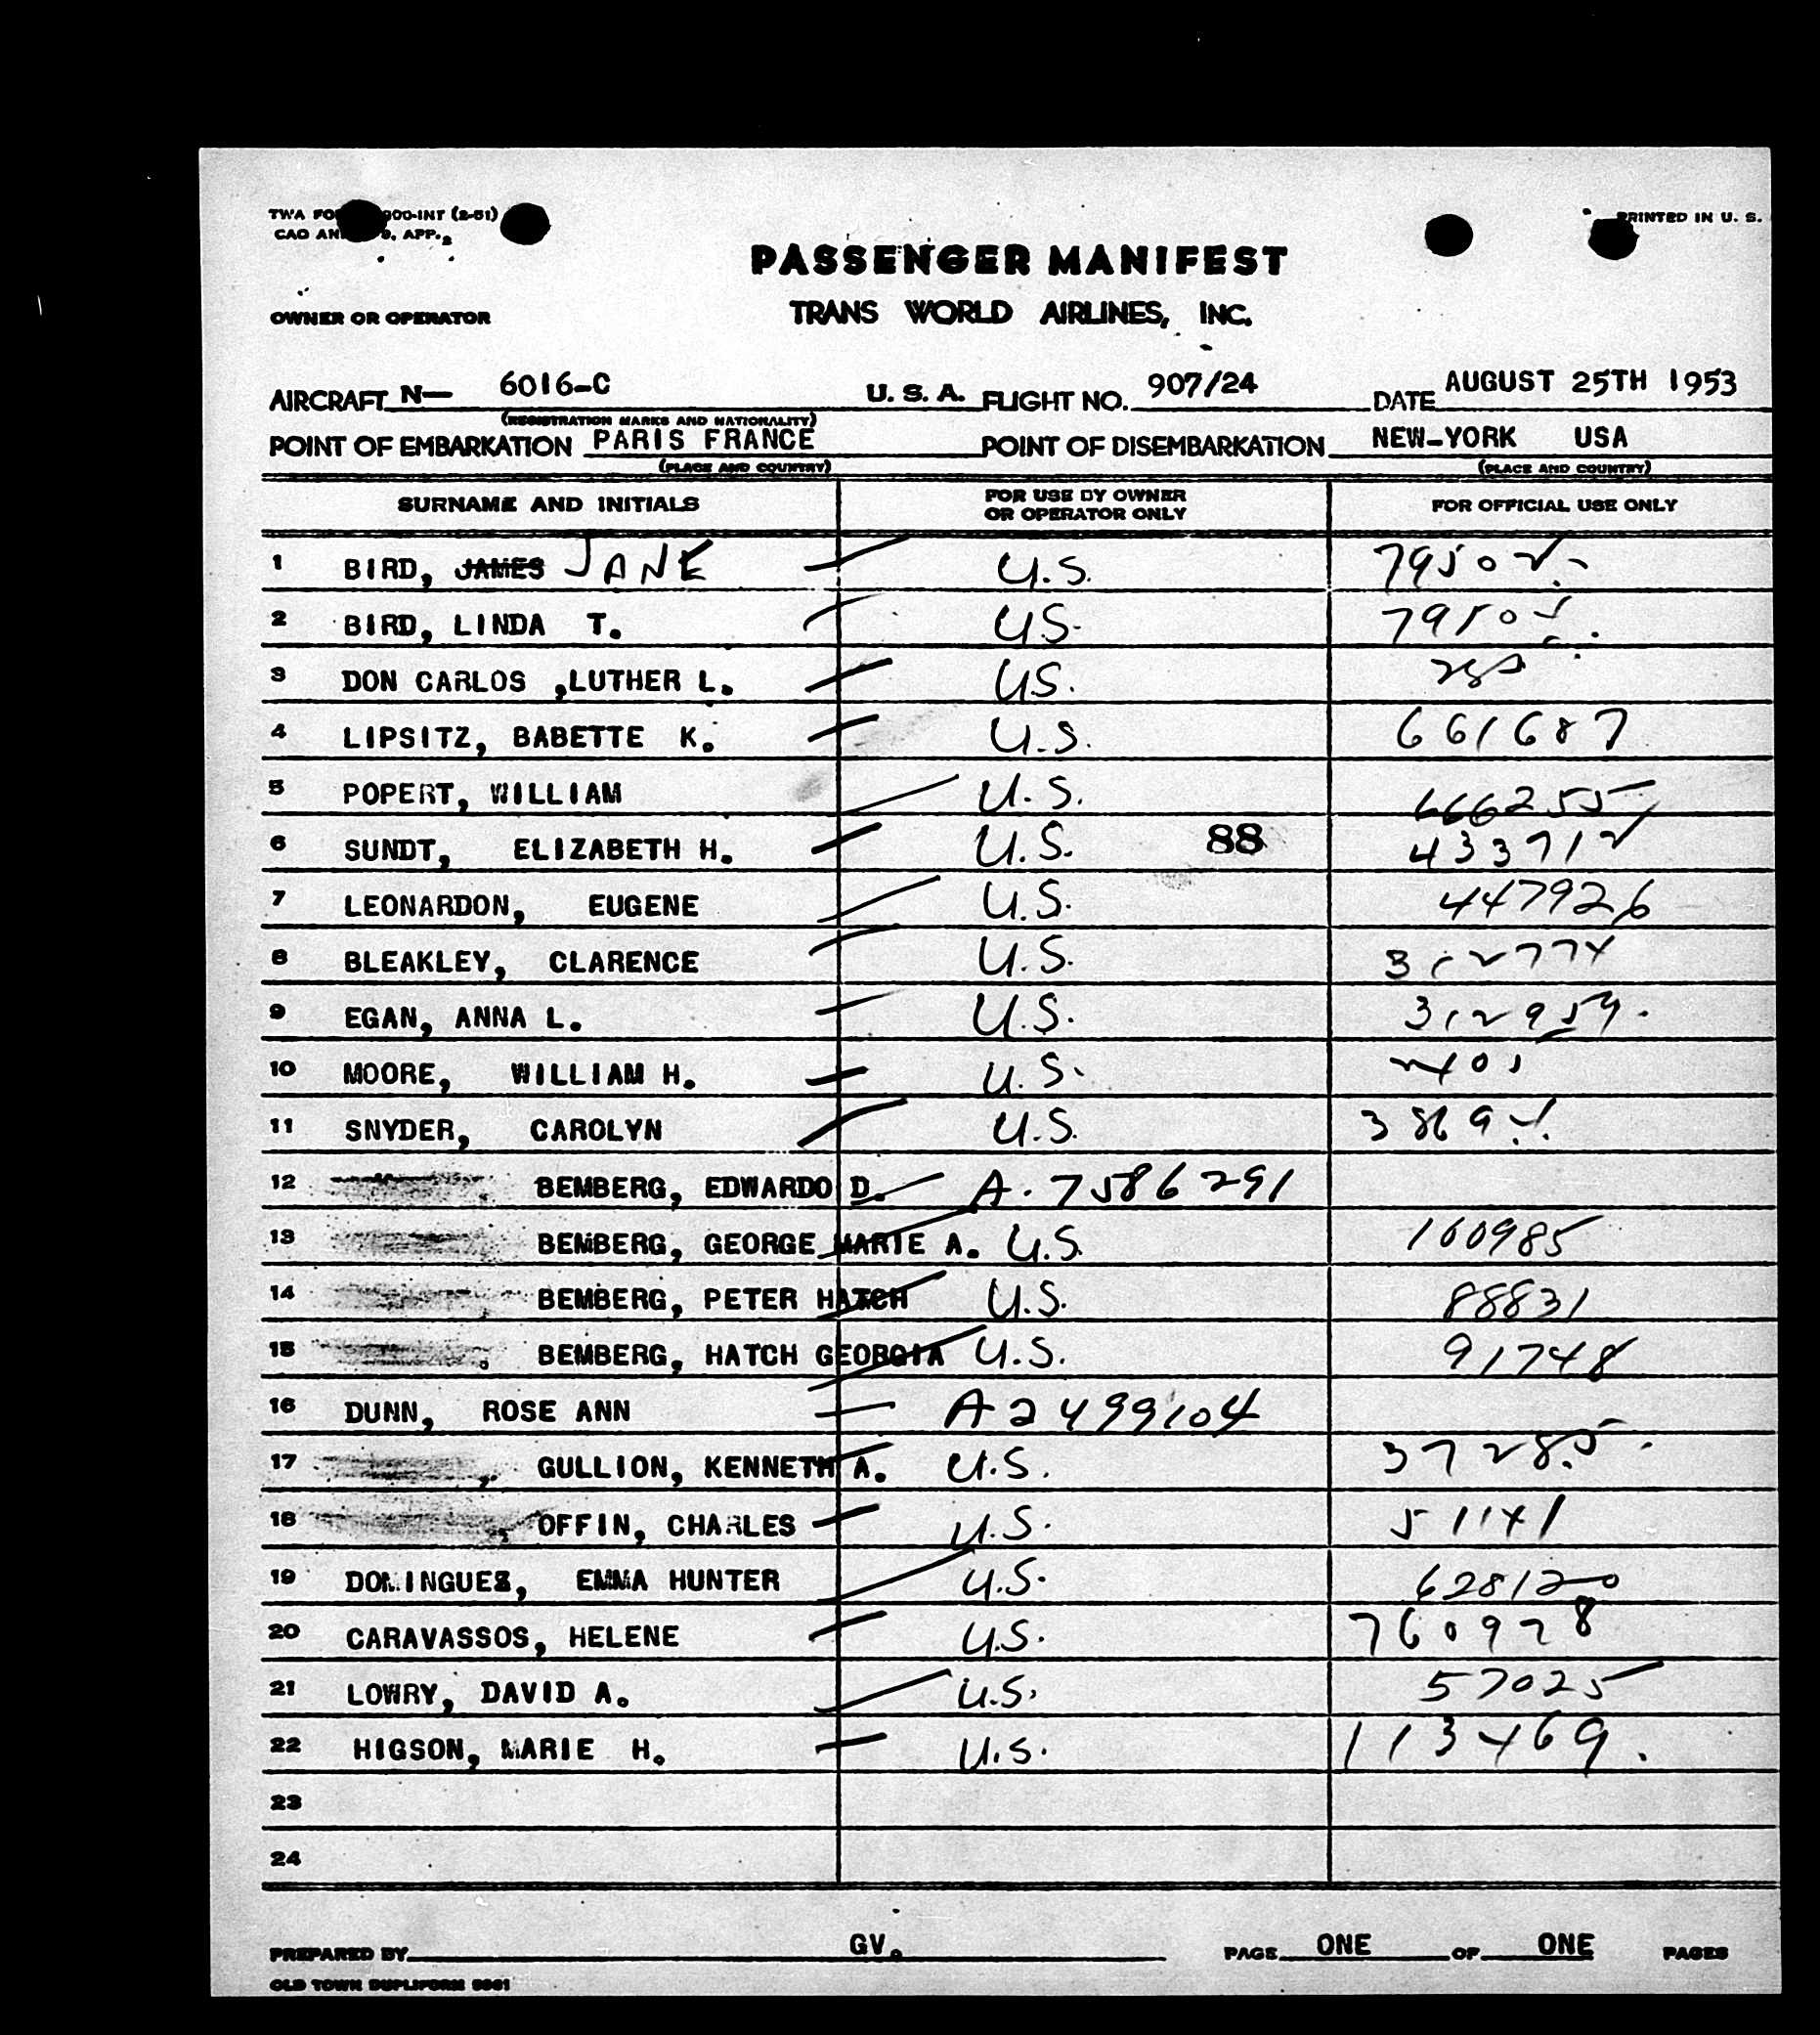 PRINTED IN U. S.
CAO
APP. 2
PASSENGER MANIFEST
OWNER OR OPERATOR TRANS WORLD AIRLINES, INC.
AIRCRAFT N— 6016-C U. S. A. FLIGHT NO. 907/24 DATE AUGUST 25TH 1953
(REGISTRATION MARKS AND NATIONALITY)
POINT OF EMBARKATION PARIS FRANCE POINT OF DISEMBARKATION NEW-YORK USA
(PLACE AND COUNTRY) (PLACE AND COUNTRY)
SURNAME AND INITIALS FOR USE BY OWNER OR OPERATOR ONLY FOR OFFICIAL USE ONLY
1 BIRD, JAMES JANE U.S.
2 BIRD, LINDA T. US.
3 DON CARLOS ,LUTHER L. US.
4 LIPSITZ, BABETTE K. U.S. 661687
5 POPERT, WILLIAM U.S. 666255
6 SUNDT, ELIZABETH H. U.S. 88 433712
7 LEONARDON, EUGENE U.S. 447926
8 BLEAKLEY, CLARENCE U.S. 312774
9 EGAN, ANNA L. U.S. 312959.
10 MOORE, WILLIAM H. U.S.
11 SNYDER, CAROLYN U.S.
12 BEMBERG, EDWARDO D. A.7586291
13 BEMBERG, GEORGE MARIE A. U.S. 160985
14 BEMBERG, PETER HATCH U.S. 88831
15 BEMBERG, HATCH GEORGIA U.S. 91748
16 DUNN, ROSE ANN A2499104
17 GULLION, KENNETH A. U.S. 37285
18 OFFIN, CHARLES U.S. 51141
19 DOMINGUEZ, EMMA HUNTER U.S. 628120
20 CARAVASSOS, HELENE U.S. 760928
21 LOWRY, DAVID A. U.S. 57025
22 HIGSON, MARIE H. U.S. 113469.
23
24
PREPARED BY GV. PAGE ONE OF ONE PAGES
OLD TOWN DUPLIFORM